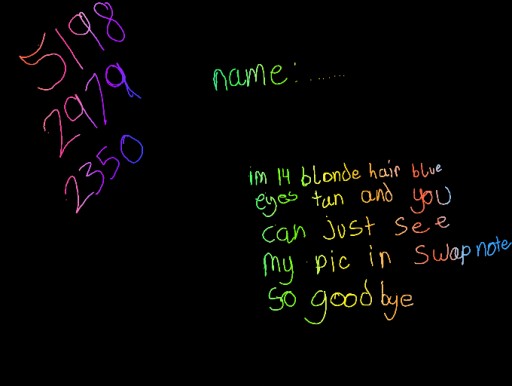 5198
2979
2350
name:.......
im 14 blonde hair blue
eyes tan and you
can just see
my pic in swapnote
so goodbye